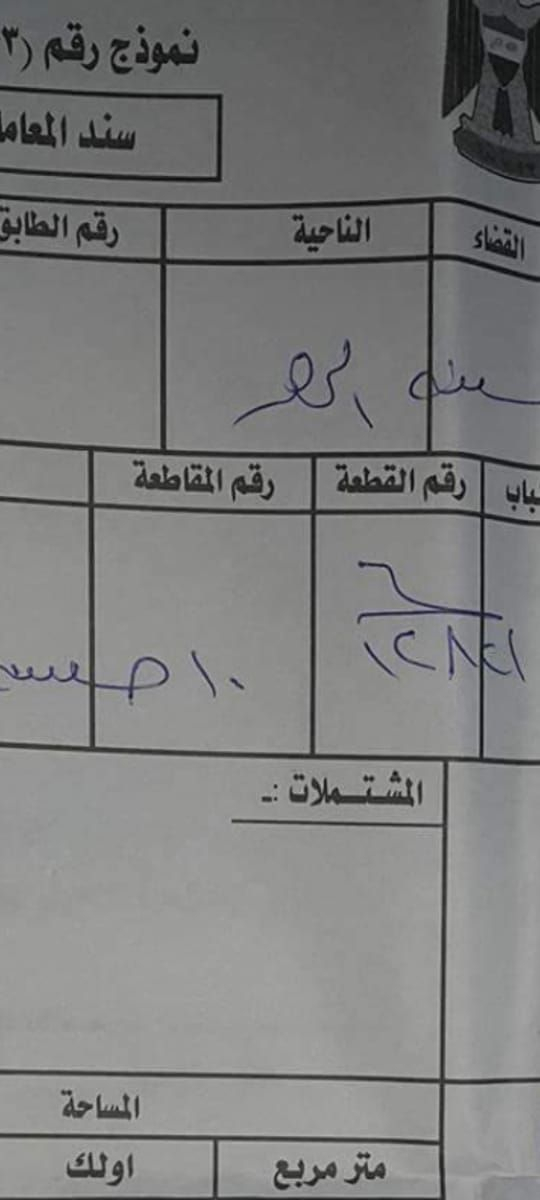 نموذج رقم (٣
سند المعامل
القضاء الناحية رقم الطابق
رقم القطعة رقم المقاطعة
١٢٨٤١
١٠
المشتملات :ـ
المساحة
متر مربع اولك